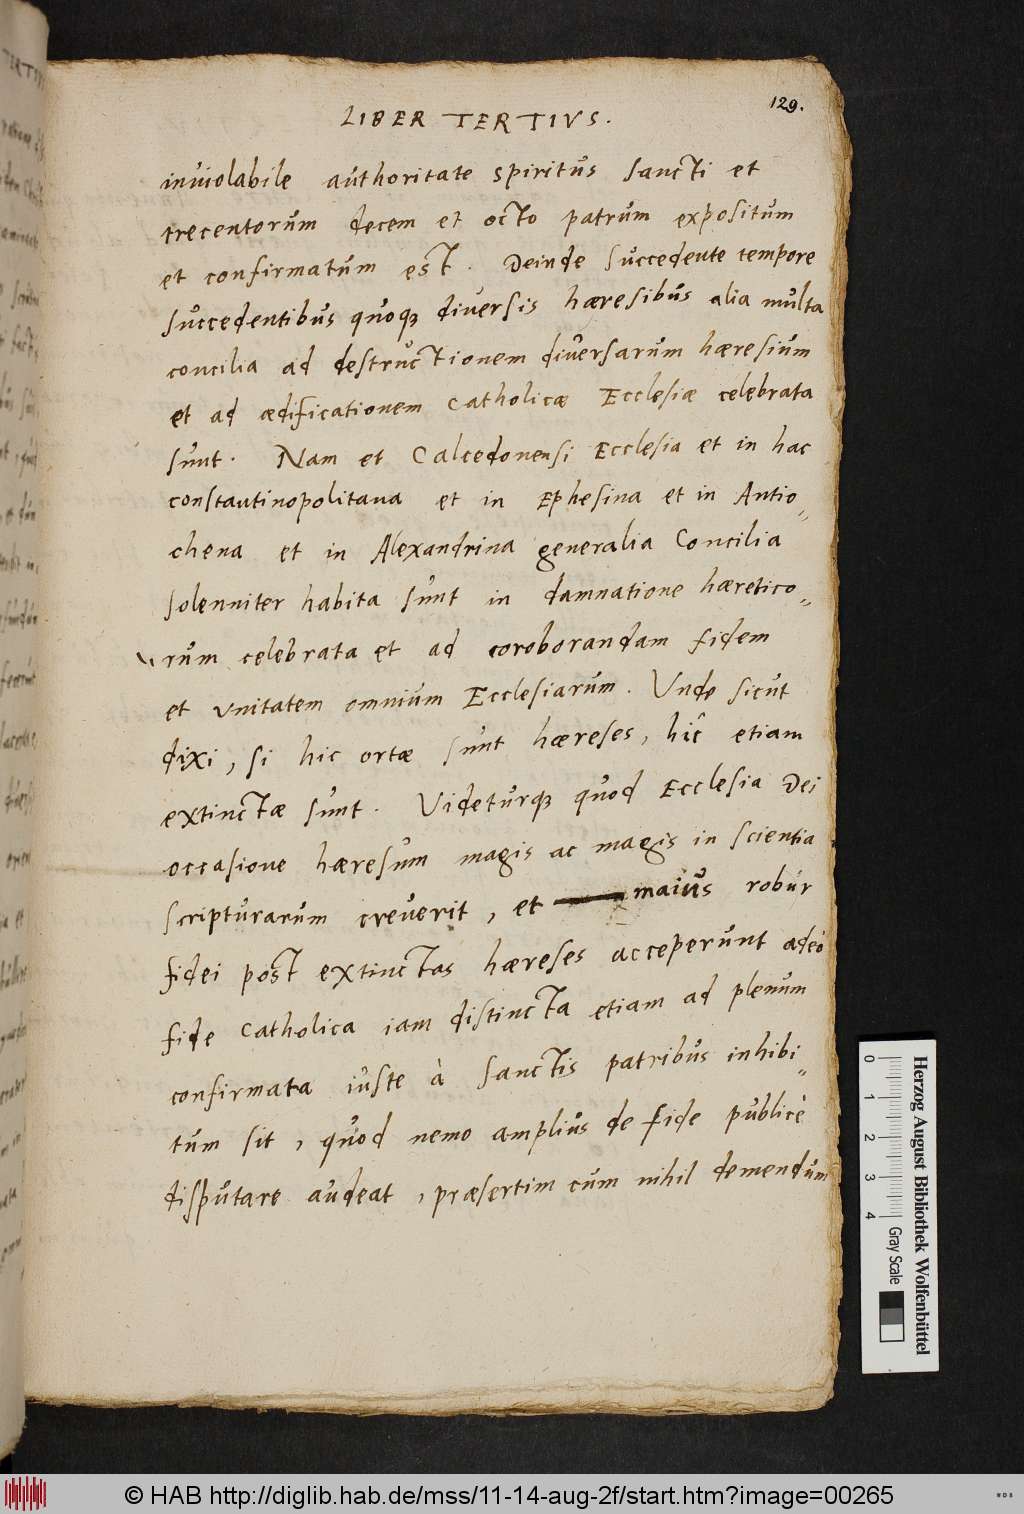 129.
LIBER TERTIVS.
inuiolabile authoritate spiritus sancti et
trecentorum decem et octo patrum expositum
et confirmatum est. Deinde succedente tempore
succedentibus quoqȝ diversis hæresibus alia multa
concilia ad destructionem diversarum hæresium
et ad ædificationem catholicæ Ecclesiæ celebrata
sunt. Nam et Calcedonensi Ecclesia et in hac
constantinopolitana et in Ephesina et in Antio„
chena et in Alexandrina generalia Concilia
solenniter habita sunt in damnatione hæretico„
rum celebrata et ad coroborandam fidem
et unitatem omnium Ecclesiarum. Unde sicut
dixi, si hic ortæ sunt hæreses, hîc etiam
extinctæ sunt. Videturqȝ quod Ecclesia Dei
occasione hæresum magis ac magis in scientia
scripturarum creverit, et maius robur
fidei post extinctas hæreses acceperunt adeò
fide catholica iam distincta etiam ad plenum
confirmata iuste à sanctis patribus inhibi„
tum sit, quod nemo amplius de fide publicè
disputare audeat, præsertim cum nihil demendum
Herzog August Bibliothek Wolfenbüttel
0 1 2 3 4 Gray Scale
© HAB http://diglib.hab.de/mss/11-14-aug-2f/start.htm?image=00265